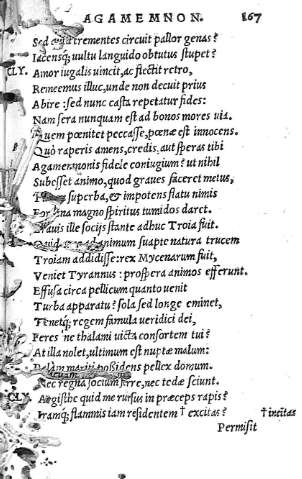 AGAMEMNON. 167
Sed trementes circuit pallor genas?
Iacensq; uultu languido obtutus stupet?
CLY. Amor iugalis uincit, ac flectit retro,
Remeemus illuc, unde non decuit prius
Abire: sed nunc casta repetatur fides:
Nam sera nunquam est ad bonos mores uia.
Quem pœnitet peccasse, pœnè est innocens.
Quò raperis amens, credis, aut speras tibi
Agamemnonis fidele coniugium? ut nihil
Subesset animo, quod graues faceret metus,
superba, & impotens flatu nimis
Fortuna magno spiritus tumidos daret.
Grauis ille socijs stante adhuc Troia fuit.
Quid animum suapte natura trucem
Troiam addidisse: rex Mycenarum fuit,
Veniet Tyrannus: prospera animos efferunt.
Effusa circa pellicum quanto uenit
Turba apparatu? sola sed longe eminet,
Tenetq; regem famula ueridici dei,
Feres ne thalami uicta consortem tui?
At illa nolet, ultimum est nuptæ malum:
possidens pellex domum.
Nec regna socium ferre, nec tedæ sciunt.
CLY. Aegisthe quid me rursus in præceps rapis?
Iramq; flammis iam residentem † excitas? † incitas
Permisit